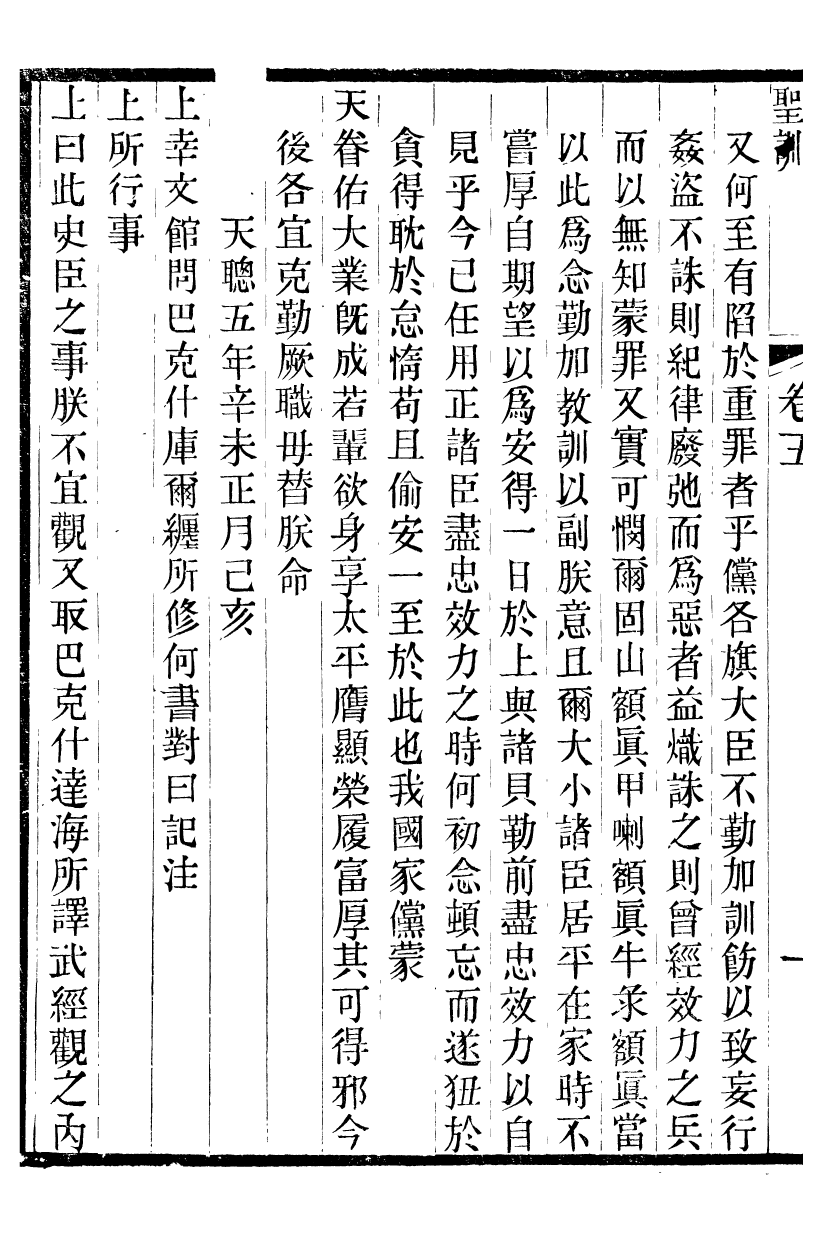 聖訓 卷五 一
又何至有陷於重罪者乎儻各旗大臣不勤加訓飭以致妄行
姦盜不誅則紀律廢弛而爲惡者益熾誅之則曾經效力之兵
而以無知蒙罪又實可憫爾固山額眞甲喇額眞牛彔額眞當
以此爲念勤加教訓以副朕意且爾大小諸臣居平在家時不
嘗厚自期望以爲安得一日於上與諸貝勒前盡忠效力以自
見乎今已任用正諸臣盡忠效力之時何初念頓忘而遂狃於
貪得耽於怠惰苟且偷安一至於此也我國家儻蒙
天眷佑大業旣成若輩欲身享太平膺顯榮履富厚其可得邪今
後各宜克勤厥職毋替朕命
天聰五年辛未正月己亥
上幸文館問巴克什庫爾纏所修何書對曰記注
上所行事
上曰此史臣之事朕不宜觀又取巴克什達海所譯武經觀之內